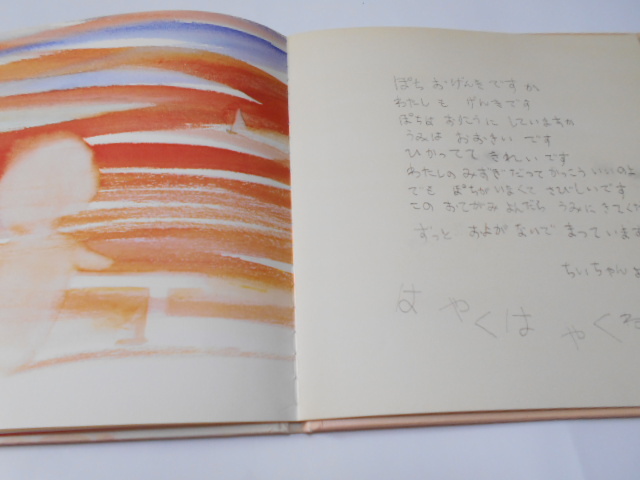 ぽち おげんきですか
わたしも げんきです
ぽちは おりこうに していますか
うみは おおきい です
ひかってて きれいです
わたしの みずぎ だって かっこういいのよ
でも ぽちが いなくて さびしいです
この おてがみ よんだら うみに きてくだ
ずっと およがないで まっています
ちいちゃん よ
はやくはやくね